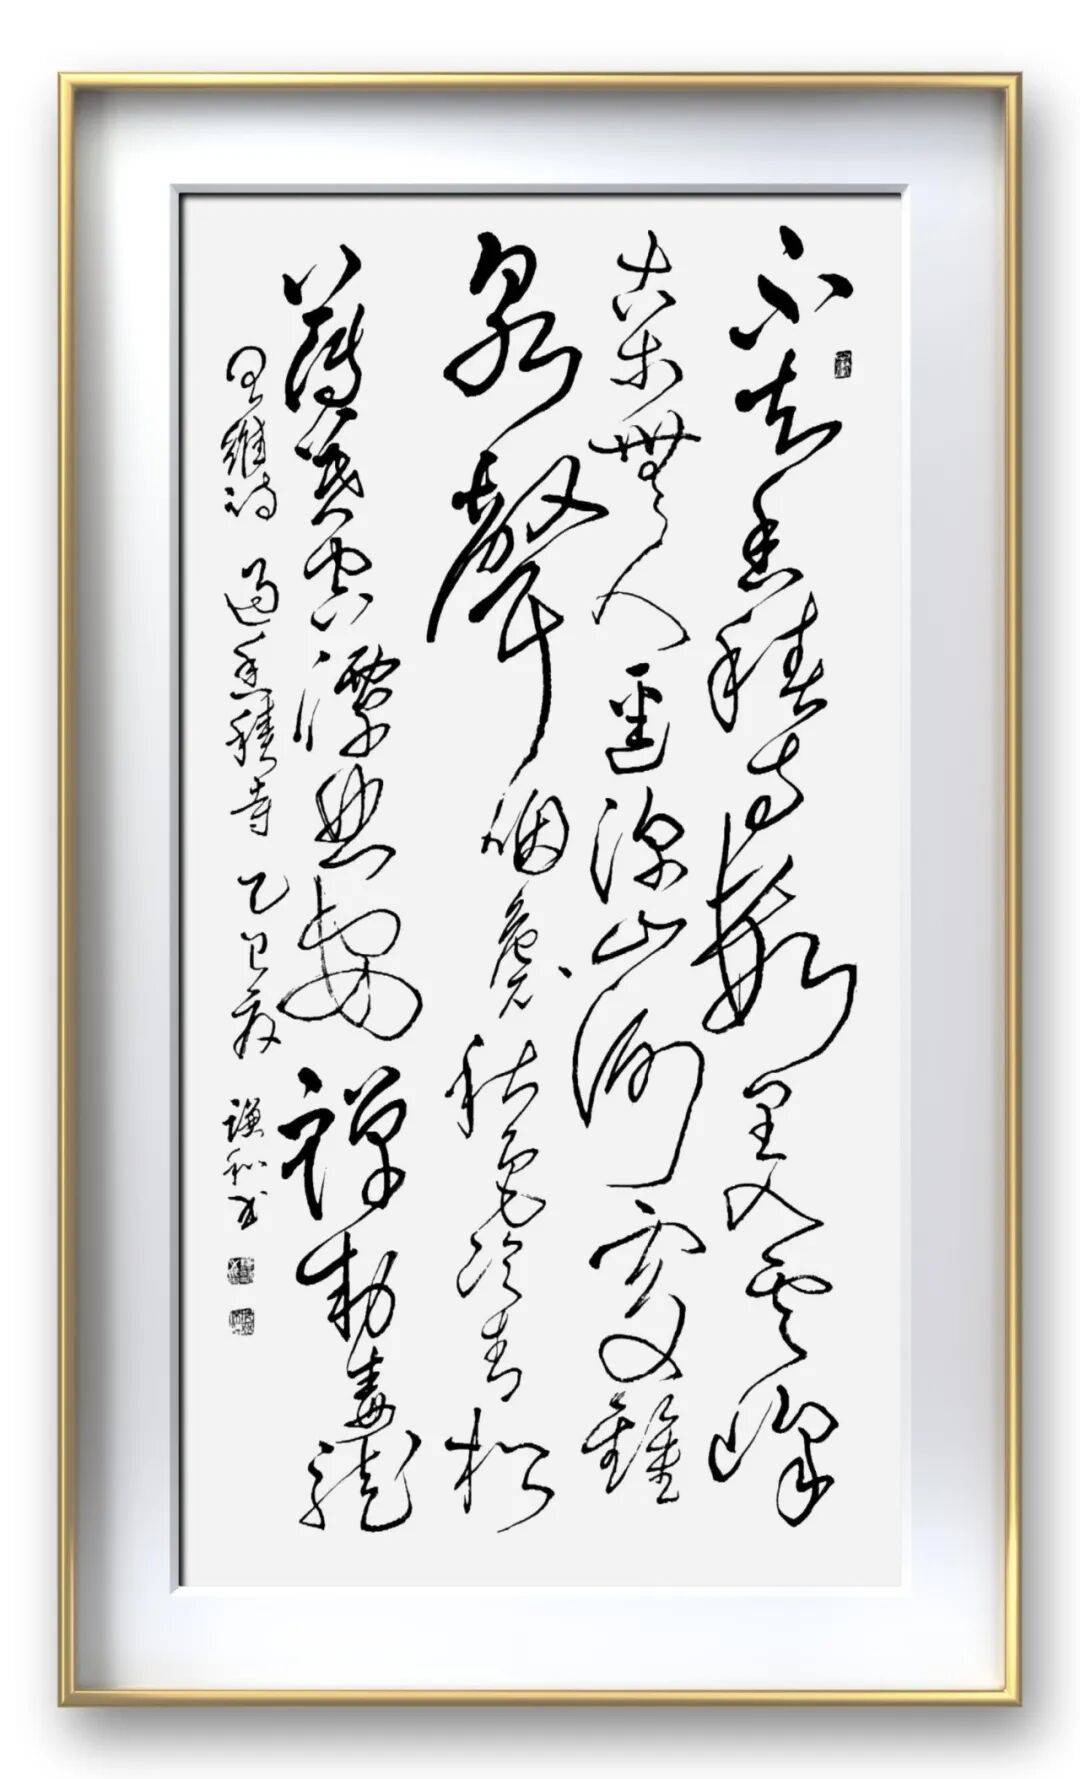 不知香積寺數里入雲峰
古木無人逕深山何處鐘
泉聲咽危石日色冷青松
薄暮空潭曲安禪制毒龍
王維詩 過香積寺 乙巳夏 謙和書